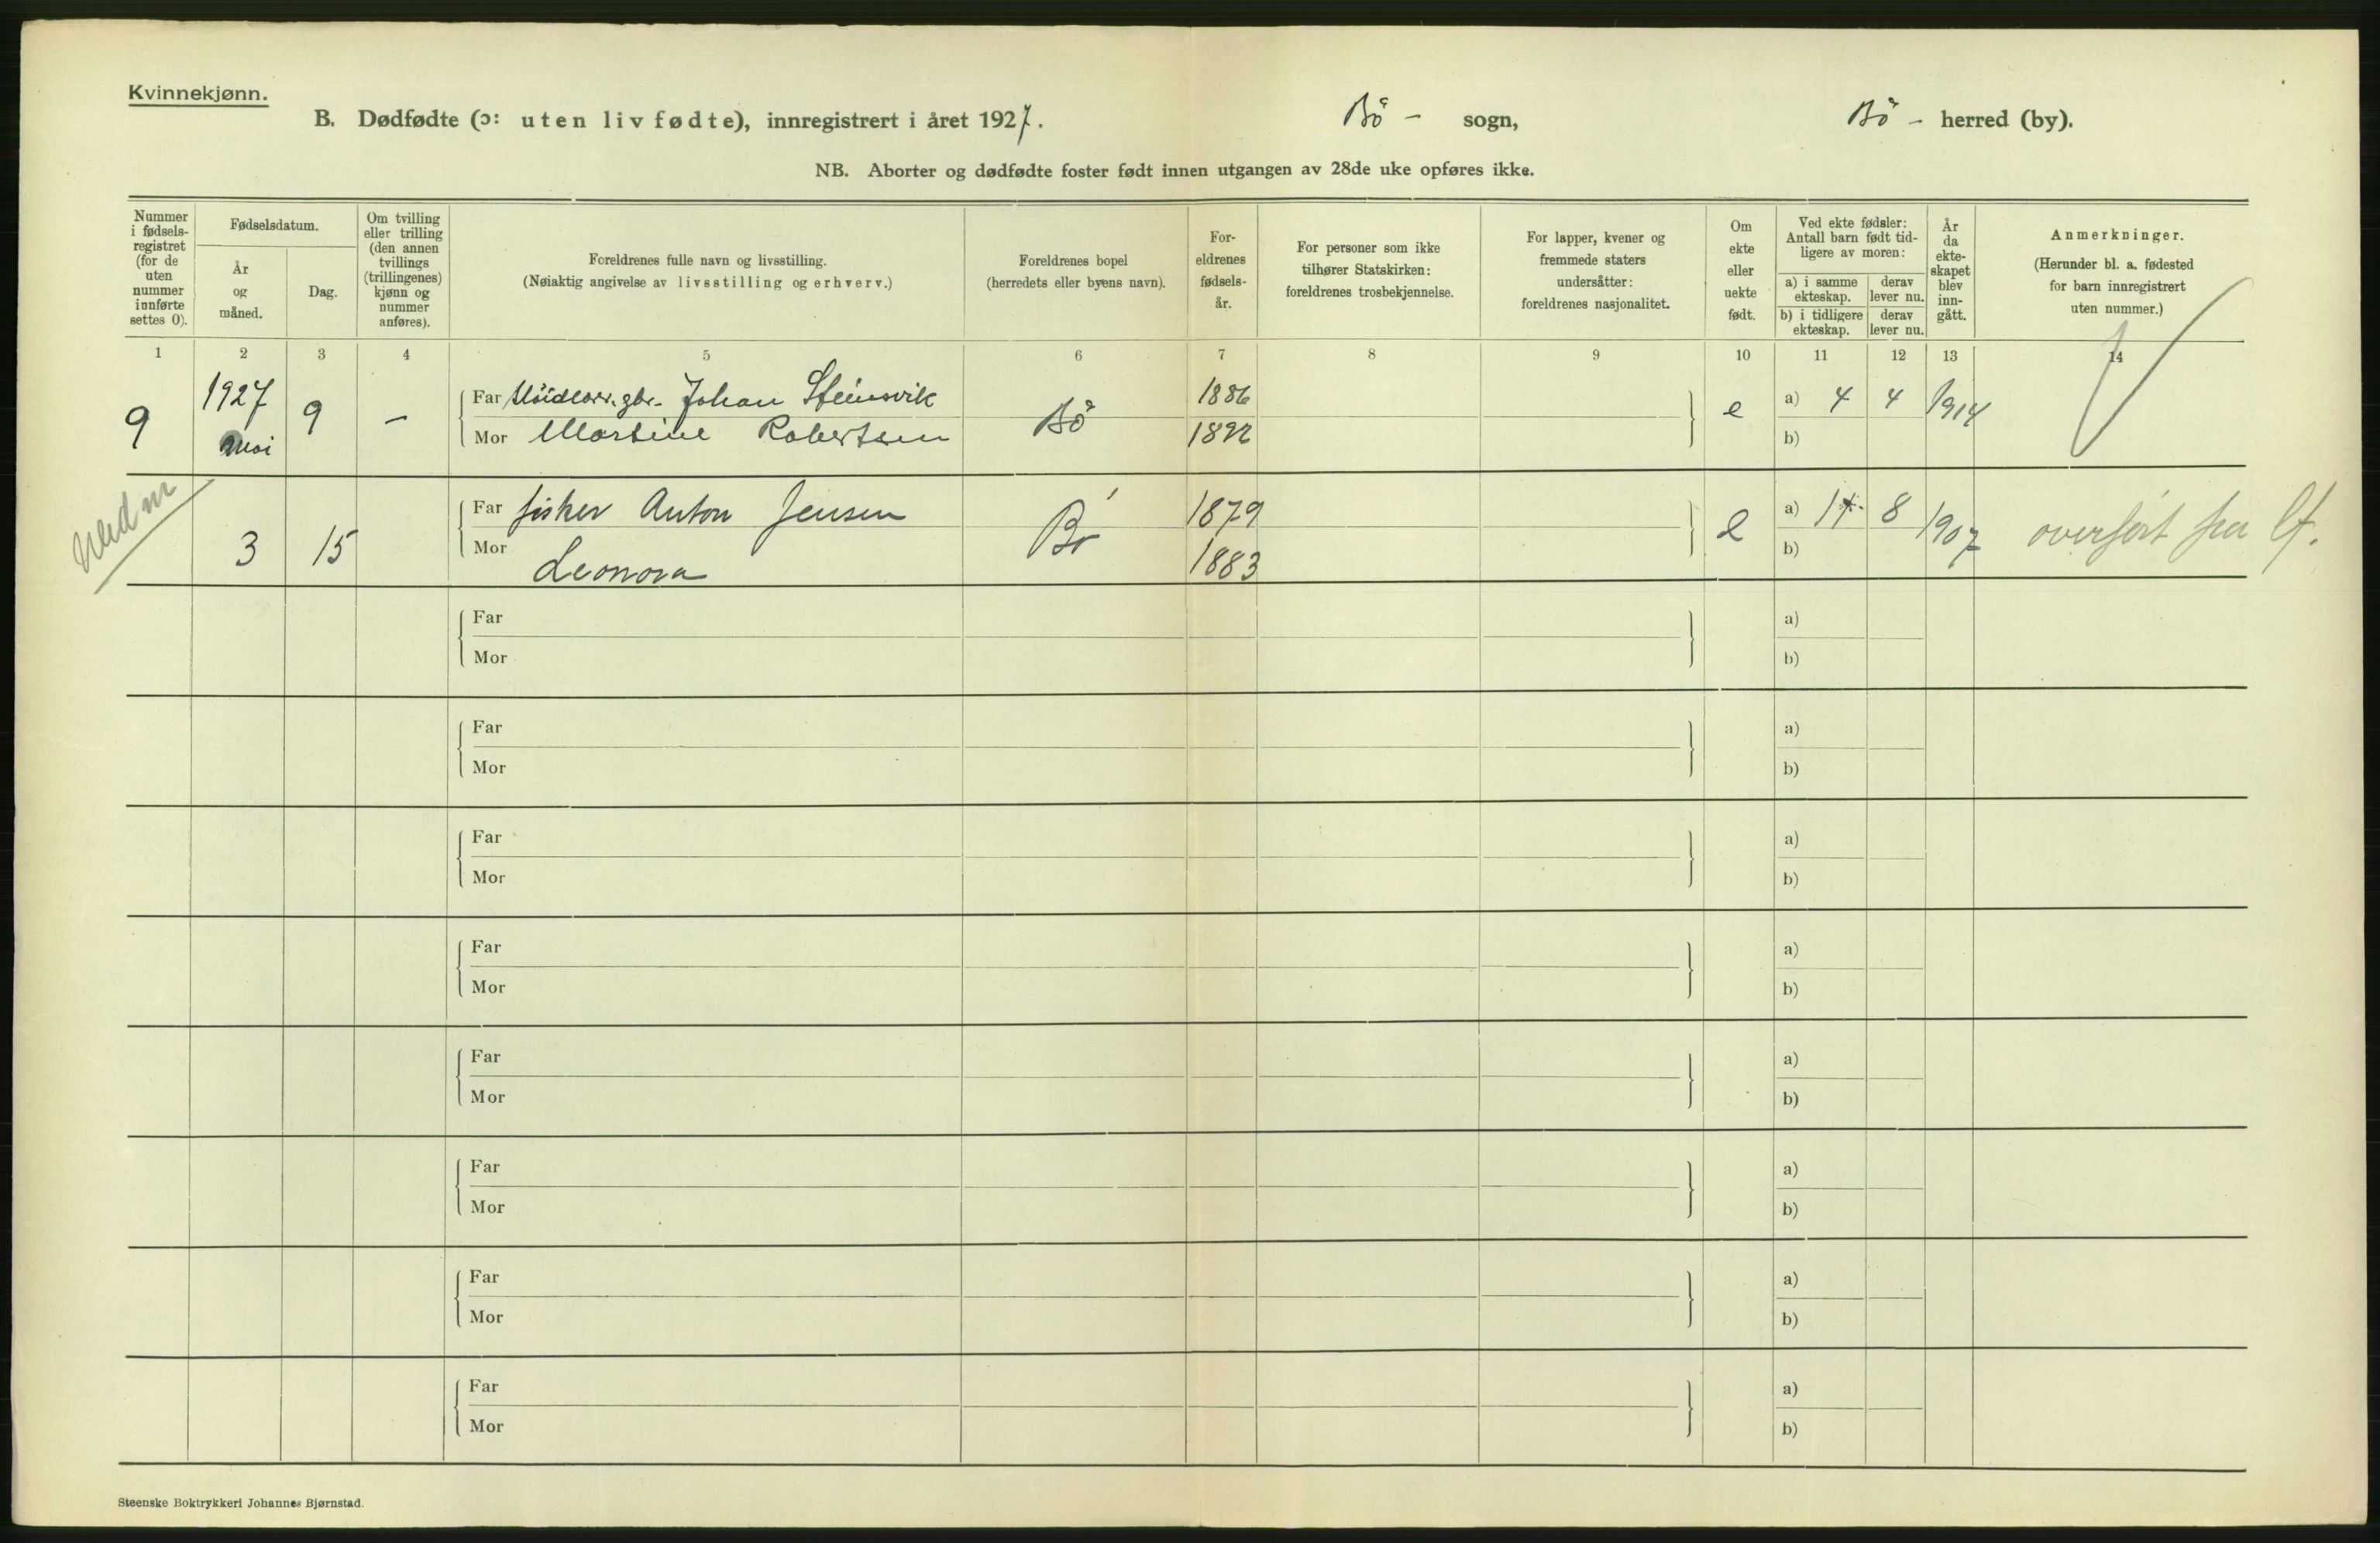 Kvinnekjønn.
B. Dødfødte (ɔ: uten liv fødte), innregistrert i året 1927. Bö - sogn, Bö - herred (by).
NB. Aborter og dødfødte foster født innen utgangen av 28de uke opføres ikke.
Nummer i fødsels-registret (for de uten nummer innførte settes 0).
Fødselsdatum.
År og måned.
Dag.
Om tvilling eller trilling (den annen tvillings (trillingenes) kjønn og nummer anføres).
Foreldrenes fulle navn og livsstilling.
(Nøiaktig angivelse av livsstilling og erhverv.)
Foreldrenes bopel
(herredets eller byens navn).
For-eldrenes fødsels-år.
For personer som ikke tilhører Statskirken: foreldrenes trosbekjennelse.
For lapper, kvener og fremmede staters undersåtter: foreldrenes nasjonalitet.
Om ekte eller uekte født.
Ved ekte fødsler: Antall barn født tid-ligere av moren:
a) i samme ekteskap. derav lever nu.
b) i tidligere ekteskap. derav lever nu.
År da ekte-skapet blev inn-gått.
Anmerkninger.
(Herunder bl. a. fødested for barn innregistrert uten nummer.)
1 2 3 4 5 6 7 8 9 10 11 12 13 14
9 1927 mai 9 - Far Johan Steinsvik Bö 1886 e a) 4 4 1914
Mor Martine Robertsen 1892 b)
3 15 Far fisker Anton Jensen Bö 1879 e a) 8 1907 overført fra lf.
Mor Leonora 1883 b)
Far a)
Mor b)
Far a)
Mor b)
Far a)
Mor b)
Far a)
Mor b)
Far a)
Mor b)
Far a)
Mor b)
Far a)
Mor b)
Far a)
Mor b)
Steenske Boktrykkeri Johannes Bjørnstad.